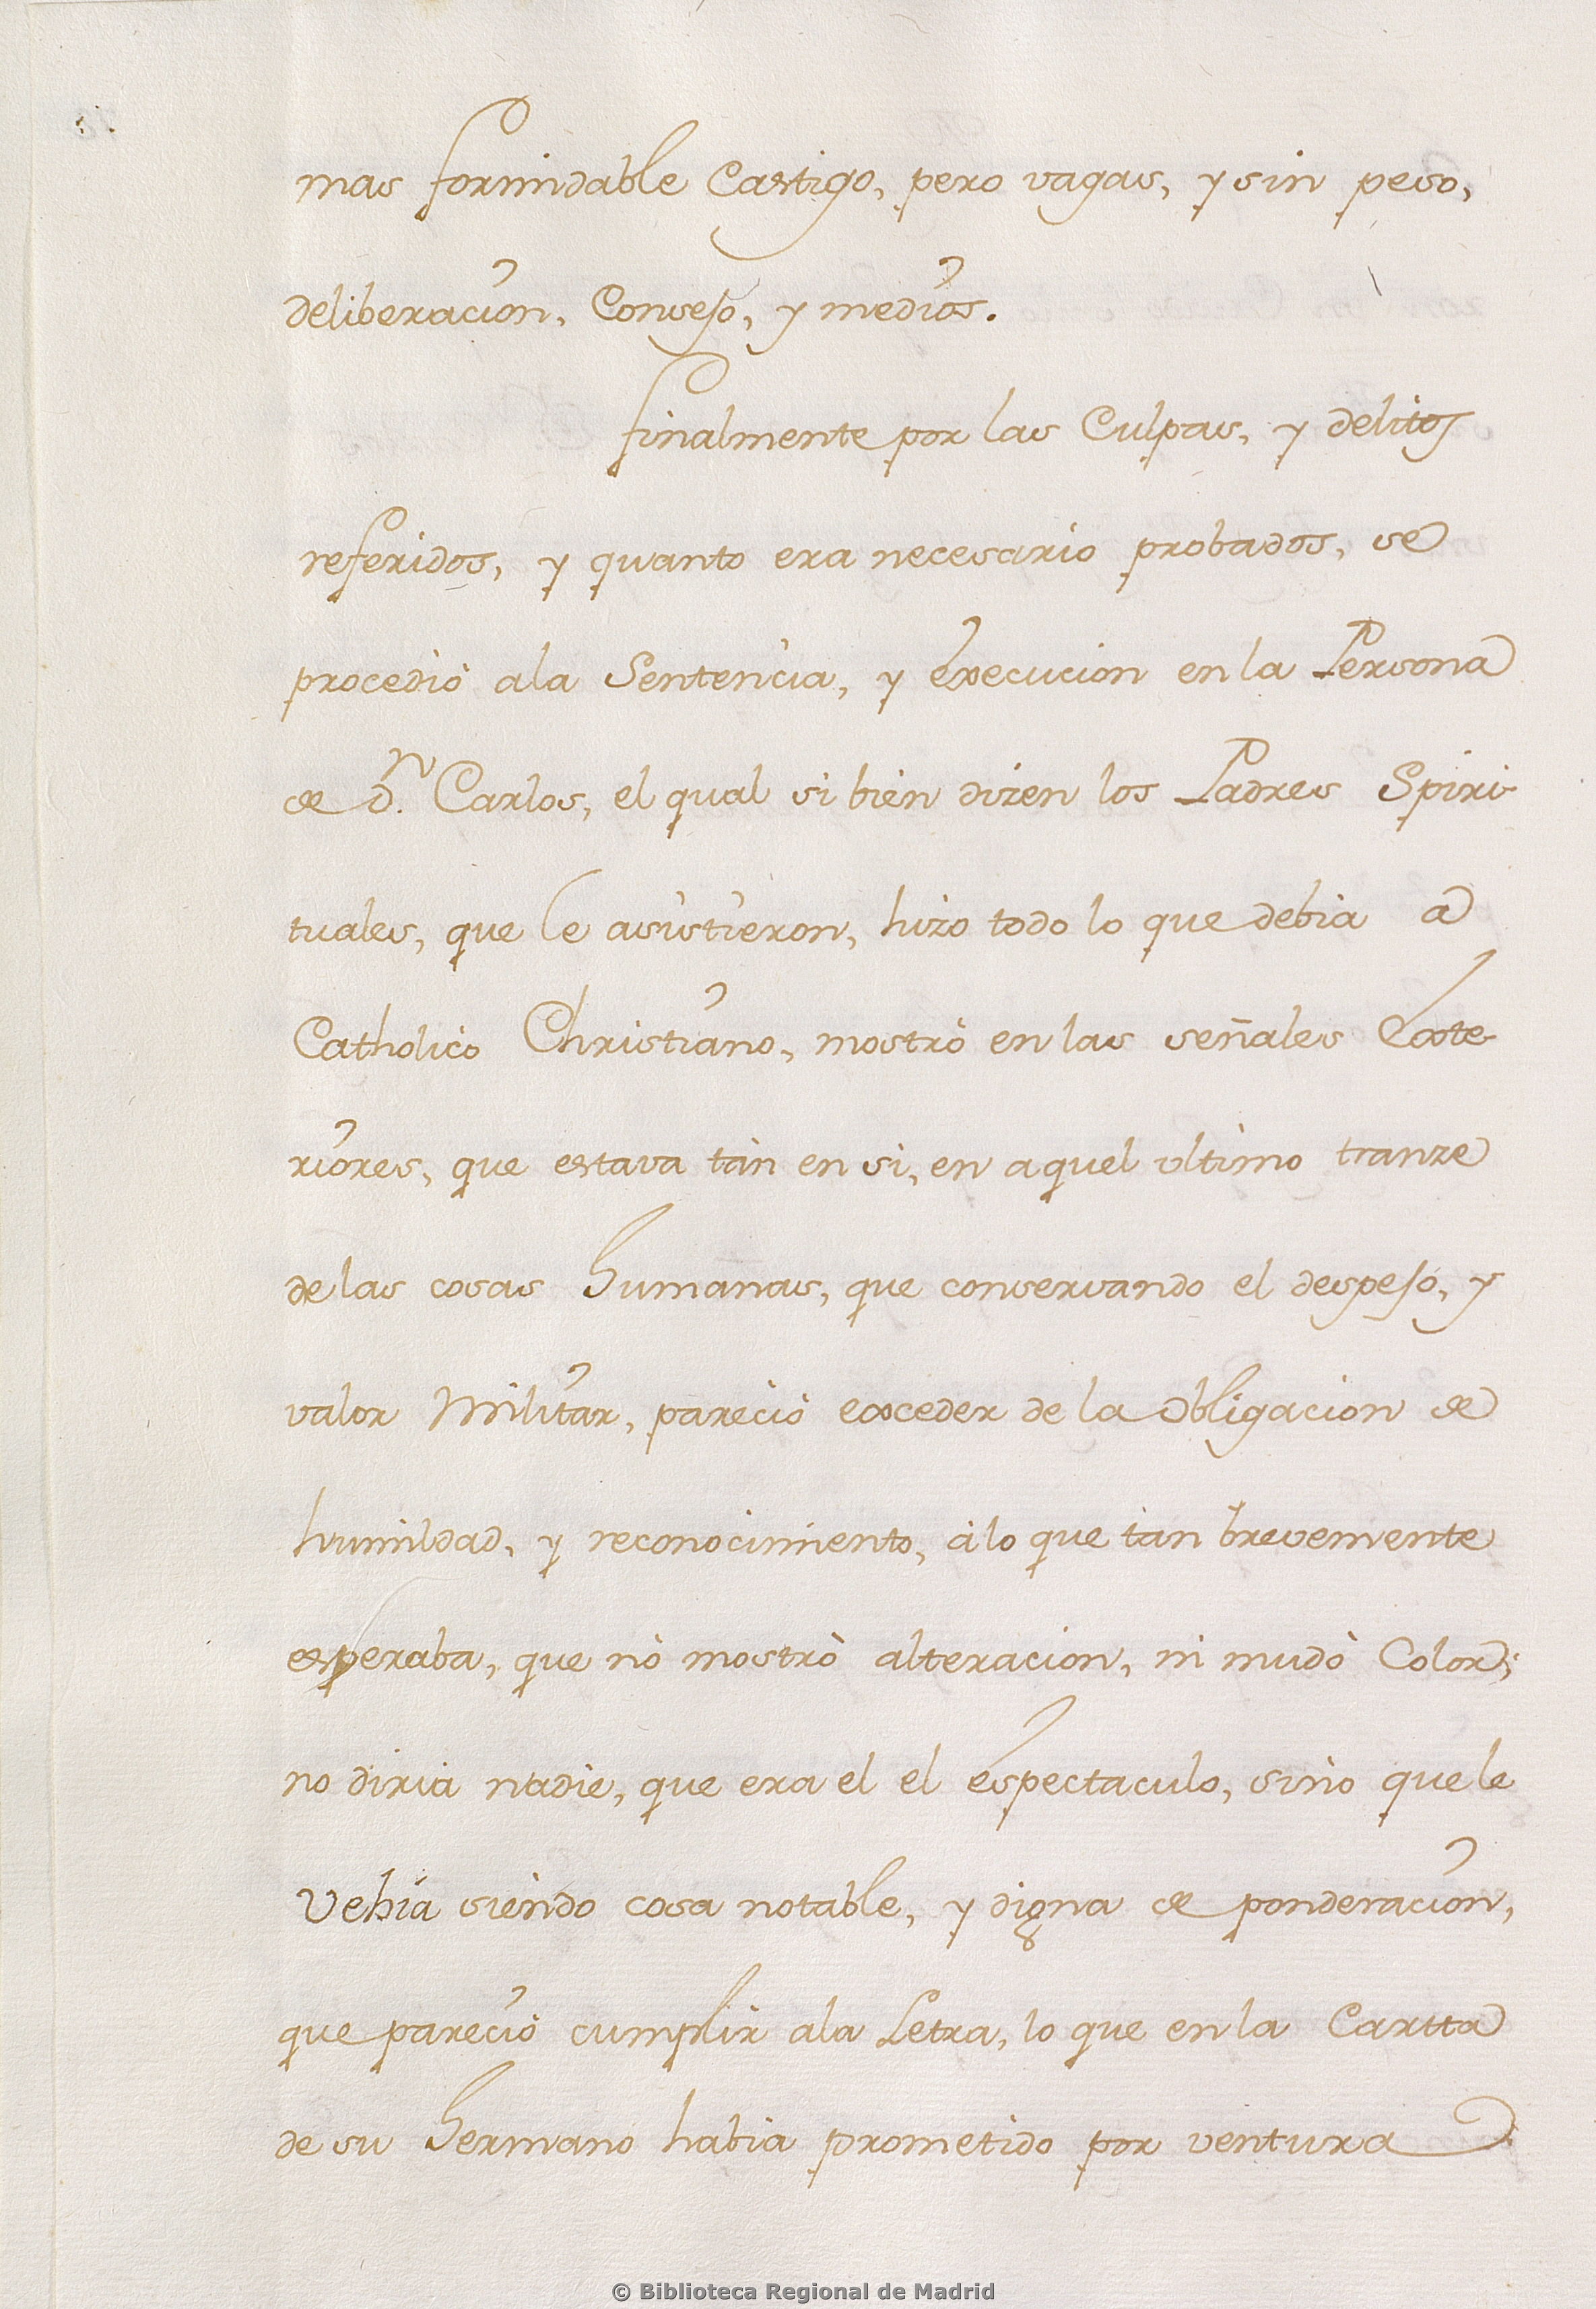 mas formidable Castigo, pero vagas, y sin peso,
deliberacion, Consejo, y medios.
finalmente por las Culpas, y delitos
referidos, y quanto era necesario probados, se
procediò a la Sentencia, y execucion en la Persona
de Dn. Carlos, el qual si bien dizen los Padres Spiri
tuales, que le asistieron, hizo todo lo que debia a
Catholico Christiano, mostrò en las señales Exte
riores, que estava tàn en si, en aquel ultimo tranze
de las cosas humanas, que conservando el despejo, y
valor Militar, pareciò exceder de la Obligacion de
humildad, y reconocimiento, à lo que tàn brevemente
esperaba, que nò mostrò alteracion, ni mudò Color;
no diria nadie, que era el el espectaculo, sino que le
Vehía siendo cosa notable, y digna de ponderacion,
que pareciò cumplir a la Letra, lo que en la Cartta
de su hermano habia prometido por ventura
© Biblioteca Regional de Madrid